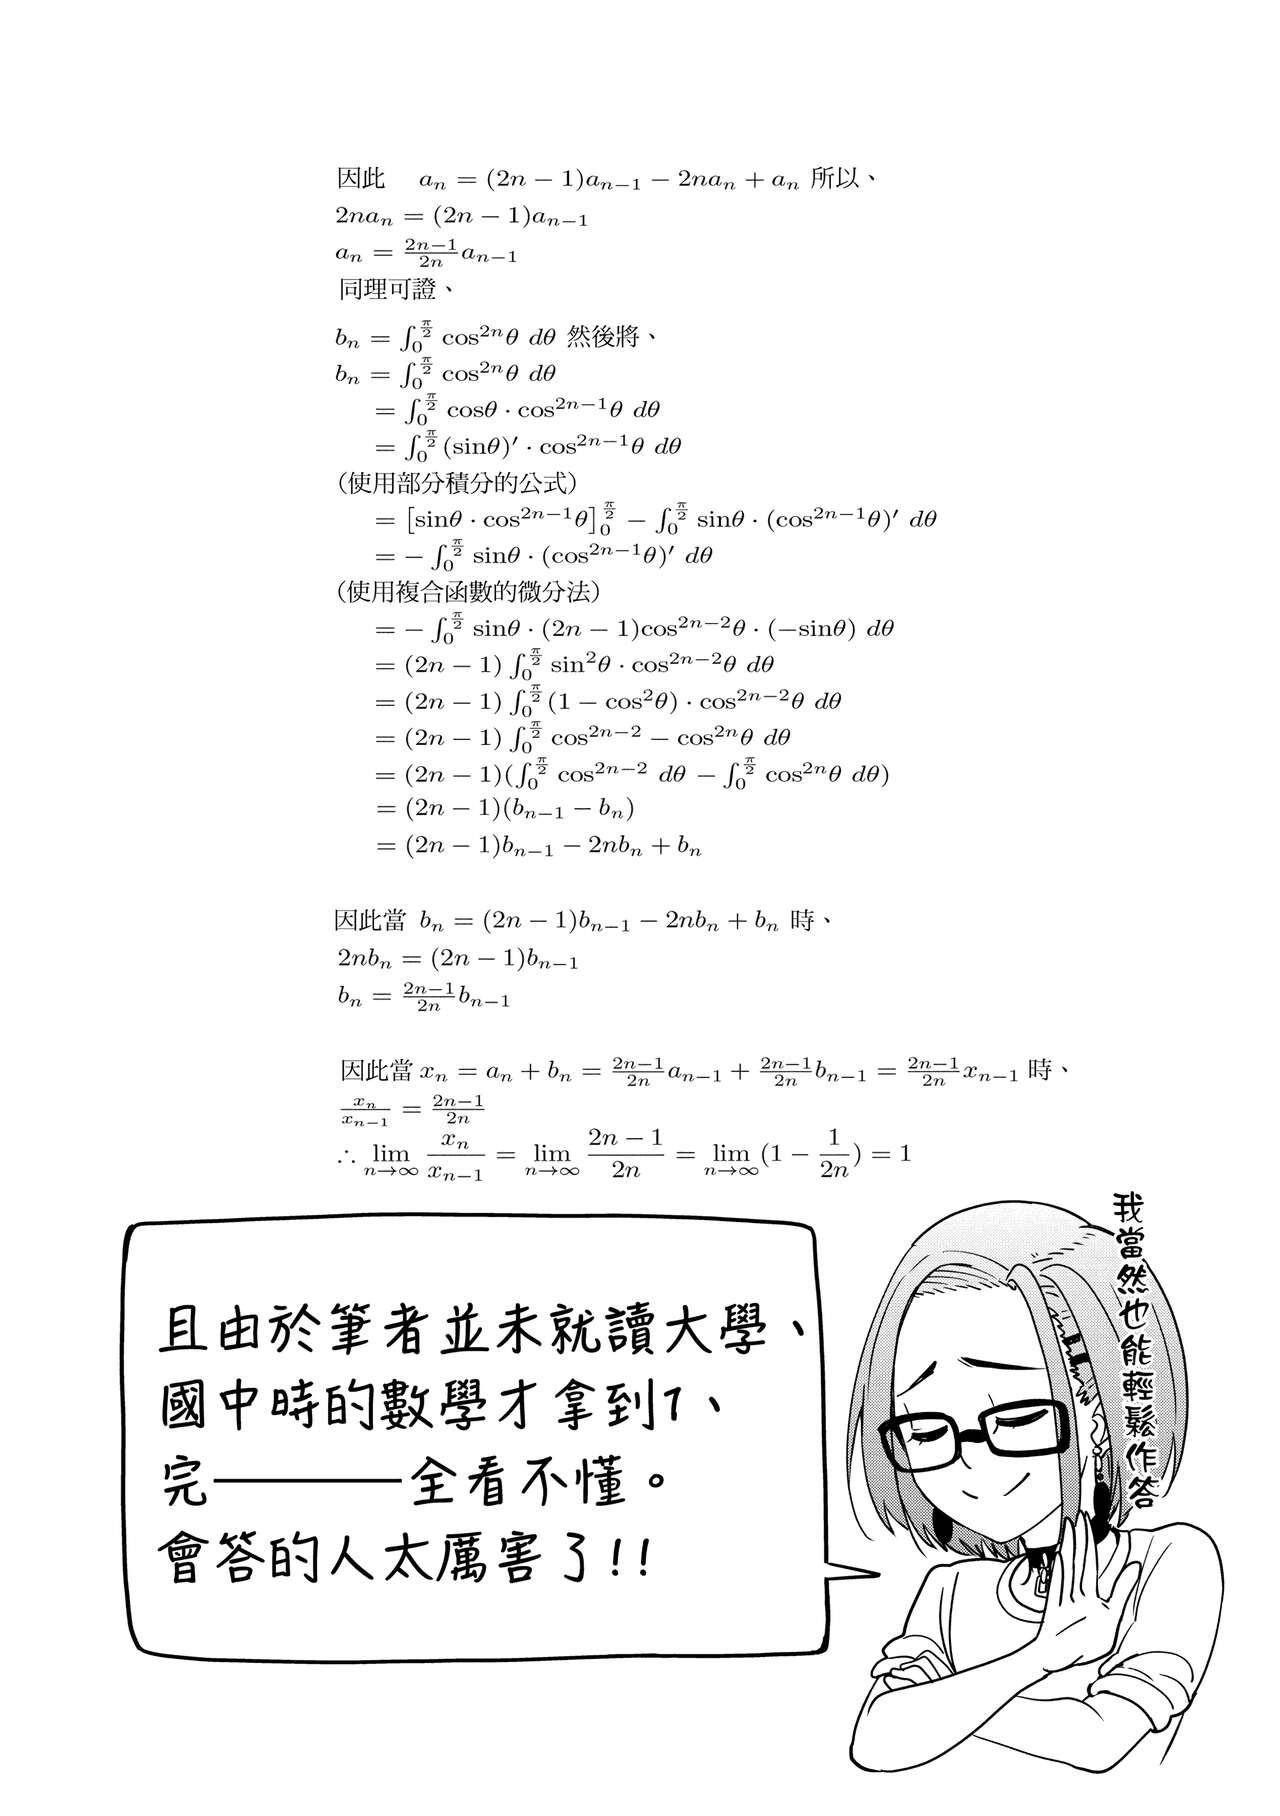 因此 aₙ = (2n − 1)aₙ₋₁ − 2naₙ + aₙ 所以、
2naₙ = (2n − 1)aₙ₋₁
aₙ = \frac{2n−1}{2n}aₙ₋₁
同理可證、
bₙ = ∫_0^{\frac{π}{2}} cos²ⁿθ dθ 然後將、
bₙ = ∫_0^{\frac{π}{2}} cos²ⁿθ dθ
= ∫_0^{\frac{π}{2}} cosθ · cos²ⁿ⁻¹θ dθ
= ∫_0^{\frac{π}{2}} (sinθ)′ · cos²ⁿ⁻¹θ dθ
(使用部分積分的公式)
= [sinθ · cos²ⁿ⁻¹θ]_0^{\frac{π}{2}} − ∫_0^{\frac{π}{2}} sinθ · (cos²ⁿ⁻¹θ)′ dθ
= − ∫_0^{\frac{π}{2}} sinθ · (cos²ⁿ⁻¹θ)′ dθ
(使用複合函數的微分法)
= − ∫_0^{\frac{π}{2}} sinθ · (2n − 1)cos²ⁿ⁻²θ · (−sinθ) dθ
= (2n − 1) ∫_0^{\frac{π}{2}} sin²θ · cos²ⁿ⁻²θ dθ
= (2n − 1) ∫_0^{\frac{π}{2}} (1 − cos²θ) · cos²ⁿ⁻²θ dθ
= (2n − 1) ∫_0^{\frac{π}{2}} cos²ⁿ⁻² − cos²ⁿθ dθ
= (2n − 1)(∫_0^{\frac{π}{2}} cos²ⁿ⁻² dθ − ∫_0^{\frac{π}{2}} cos²ⁿθ dθ)
= (2n − 1)(bₙ₋₁ − bₙ)
= (2n − 1)bₙ₋₁ − 2nbₙ + bₙ
因此當 bₙ = (2n − 1)bₙ₋₁ − 2nbₙ + bₙ 時、
2nbₙ = (2n − 1)bₙ₋₁
bₙ = \frac{2n−1}{2n}bₙ₋₁
因此當 xₙ = aₙ + bₙ = \frac{2n−1}{2n}aₙ₋₁ + \frac{2n−1}{2n}bₙ₋₁ = \frac{2n−1}{2n}xₙ₋₁ 時、
\frac{xₙ}{xₙ₋₁} = \frac{2n−1}{2n}
∴ lim_{n→∞} \frac{xₙ}{xₙ₋₁} = lim_{n→∞} \frac{2n − 1}{2n} = lim_{n→∞}(1 − \frac{1}{2n}) = 1
我當然也能輕鬆作答
且由於筆者並未就讀大學、
國中時的數學才拿到1、
完———全看不懂。
會答的人太厲害了!!